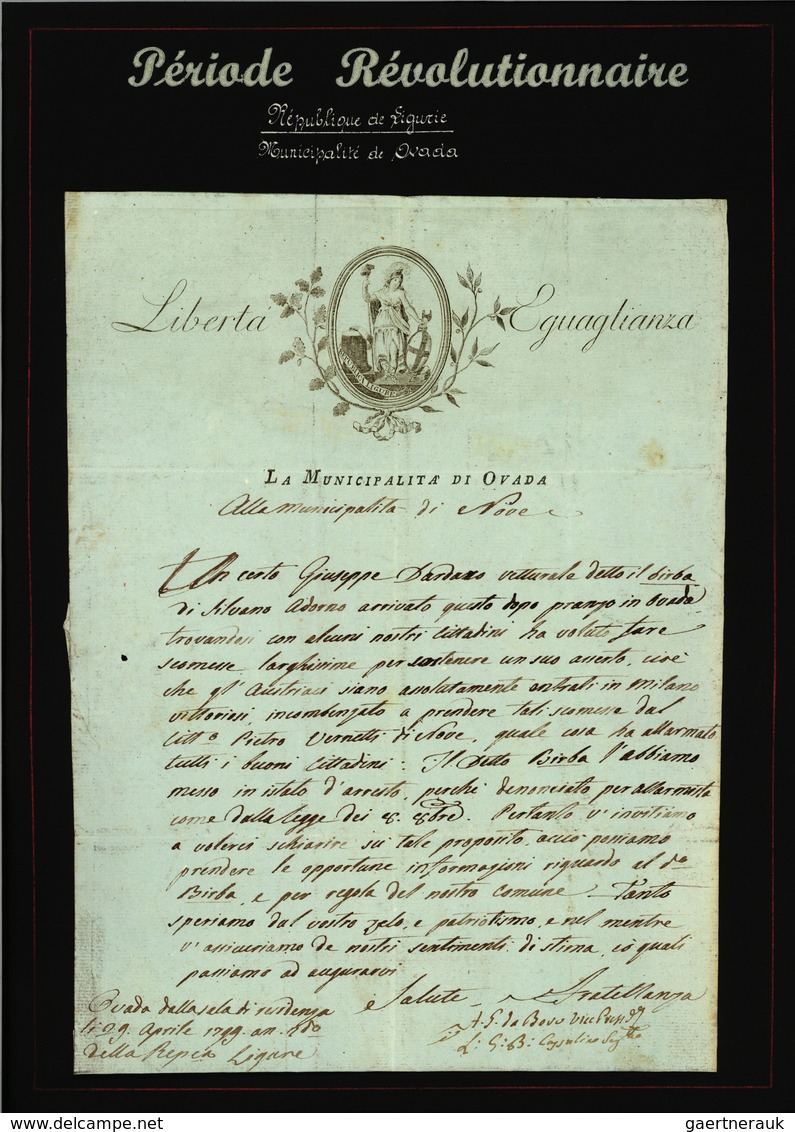 Période Révolutionnaire
République de Ligurie
Municipalité de Ovada
Libertà Eguaglianza
LA MUNICIPALITÀ DI OVADA
Alla Municipalità di Nove
Un certo Giuseppe Dardano vetturale detto il Birba
di Silvano Adorno arrivato questo dopo pranzo in Ovada
trovandosi con alcuni nostri Cittadini ha voluto fare
scomesse larghissime per sostenere un suo asserto, cioè
che gl' Austriaci siano assolutamente entrati in Milano
vittoriosi, incombenzato a prendere tali scomesse dal
Citt.o Pietro Vernetti di Nove, quale cosa ha allarmato
tutti i buoni Cittadini: Il detto Birba l'abbiamo
messo in istato d'arresto, perchè denonciato per allarmista
come dalla legge dei 8. 8bre. Pertanto v' invitiamo
a volerci schiarire su tale proposito, acciò possiamo
prendere le opportune informazioni riguardo al do
Birba, e per regola del nostro comune. Tanto
speriamo dal vostro zelo, e patriotismo, e nel mentre
v' assicuriamo de nostri sentimenti di stima, co quali
passiamo ad augurarvi
Salute e Fratellanza
Ovada dalla sala di residenza
li 29. Aprile 1799. an. 2do
della Repca Ligure
gaertnerauk